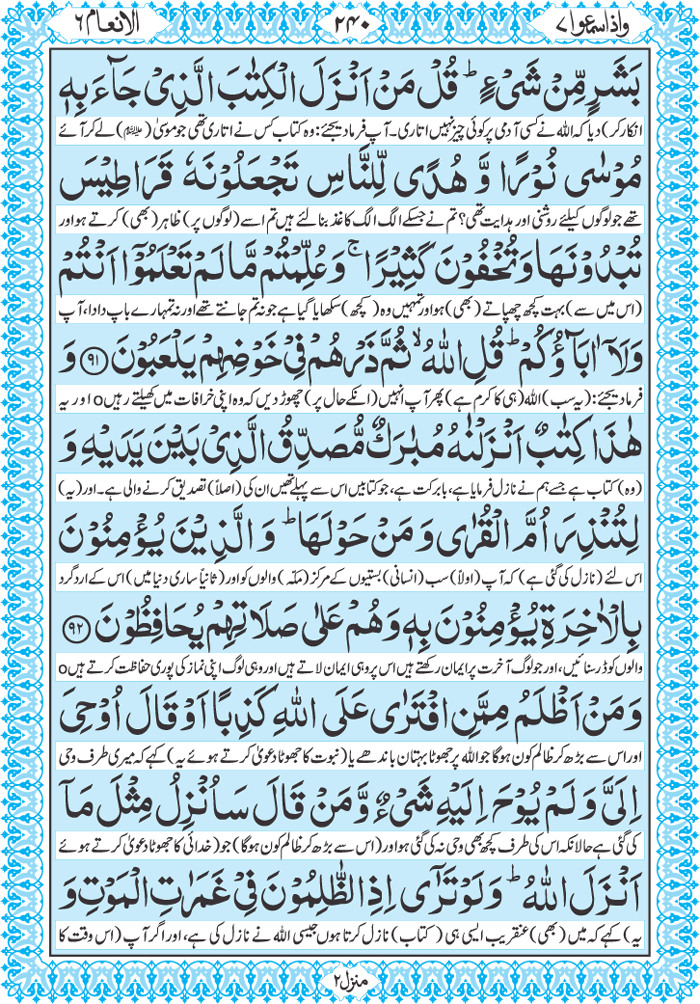 واذا سمعوا ٧
٢٤٠
الانعام ٦
بَشَرٍ مِّنْ شَیْءٍ ؕ قُلْ مَنْ اَنْزَلَ الْكِتٰبَ الَّذِیْ جَآءَ بِهٖ
انکار کر) دیا کہ اللہ نے کسی آدمی پر کوئی چیز نہیں اتاری۔ آپ فرما دیجئے: وہ کتاب کس نے اتاری تھی جو موسیٰ (علیہ السلام) لے کر آئے
مُوْسٰی نُوْرًا وَّ هُدًی لِّلنَّاسِ تَجْعَلُوْنَهٗ قَرَاطِیْسَ
تھے جو لوگوں کیلئے روشنی اور ہدایت تھی؟ تم نے جسکے الگ الگ کاغذ بنا لئے ہیں تم اسے (لوگوں پر) ظاہر (بھی) کرتے ہو اور
تُبْدُوْنَهَا وَ تُخْفُوْنَ كَثِیْرًا ۚ وَ عُلِّمْتُمْ مَّا لَمْ تَعْلَمُوْۤا اَنْتُمْ
(اس میں سے) بہت کچھ چھپاتے (بھی) ہو اور تمہیں وہ (کچھ) سکھایا گیا ہے جو نہ تم جانتے تھے اور نہ تمہارے باپ دادا، آپ
وَلَاۤ اٰبَآؤُكُمْ ؕ قُلِ اللّٰهُ ۙ ثُمَّ ذَرْهُمْ فِیْ خَوْضِهِمْ یَلْعَبُوْنَ ﴿٩١﴾ وَ
فرما دیجئے: (یہ سب) اللہ (ہی کا کرم ہے) پھر آپ انہیں (انکے حال پر) چھوڑ دیں کہ وہ اپنی خرافات میں کھیلتے رہیں o اور یہ
هٰذَا كِتٰبٌ اَنْزَلْنٰهُ مُبٰرَكٌ مُّصَدِّقُ الَّذِیْ بَیْنَ یَدَیْهِ وَ
(وہ) کتاب ہے جسے ہم نے نازل فرمایا ہے، بابرکت ہے، جو کتابیں اس سے پہلے تھیں ان کی (اصلاً) تصدیق کرنے والی ہے۔ اور (یہ)
لِتُنْذِرَ اُمَّ الْقُرٰی وَ مَنْ حَوْلَهَا ؕ وَ الَّذِیْنَ یُؤْمِنُوْنَ
اس لئے (نازل کی گئی ہے) کہ آپ (اولاً) سب (انسانی) بستیوں کے مرکز (مکّہ) والوں کو اور (ثانیاً ساری دنیا میں) اس کے ارد گرد
بِالْاٰخِرَةِ یُؤْمِنُوْنَ بِهٖ وَ هُمْ عَلٰی صَلَاتِهِمْ یُحَافِظُوْنَ ﴿٩٢﴾
والوں کو ڈر سنائیں، اور جو لوگ آخرت پر ایمان رکھتے ہیں اس پر وہی ایمان لاتے ہیں اور وہی لوگ اپنی نماز کی پوری حفاظت کرتے ہیں o
وَ مَنْ اَظْلَمُ مِمَّنِ افْتَرٰی عَلَی اللّٰهِ كَذِبًا اَوْ قَالَ اُوْحِیَ
اور اس سے بڑھ کر ظالم کون ہوگا جو اللہ پر جھوٹا بہتان باندھے یا (نبوت کا جھوٹا دعویٰ کرتے ہوئے یہ) کہے کہ میری طرف وحی
اِلَیَّ وَ لَمْ یُوْحَ اِلَیْهِ شَیْءٌ وَّ مَنْ قَالَ سَاُنْزِلُ مِثْلَ مَاۤ
کی گئی ہے حالانکہ اس کی طرف کچھ بھی وحی نہ کی گئی ہو اور (اس سے بڑھ کر ظالم کون ہوگا) جو (خدائی کا جھوٹا دعویٰ کرتے ہوئے
اَنْزَلَ اللّٰهُ ؕ وَ لَوْ تَرٰۤی اِذِ الظّٰلِمُوْنَ فِیْ غَمَرٰتِ الْمَوْتِ وَ
یہ) کہے کہ میں (بھی) عنقریب ایسی ہی (کتاب) نازل کرتا ہوں جیسی اللہ نے نازل کی ہے، اور اگر آپ (اس وقت کا
منزل ٢